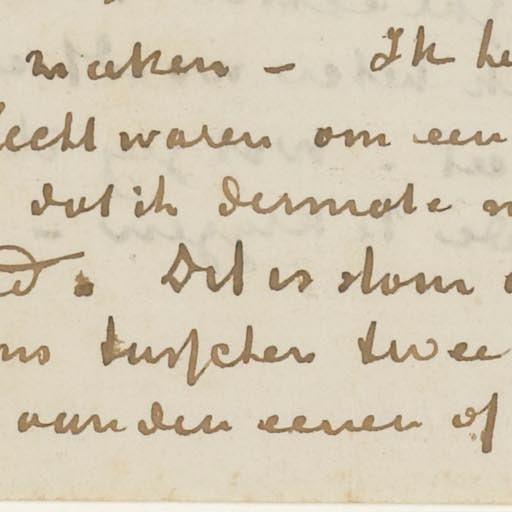 maken – Ik he
lecht waren om een
dat ik dermate
Dit is stom
ns tusschen twee
van den eenen of